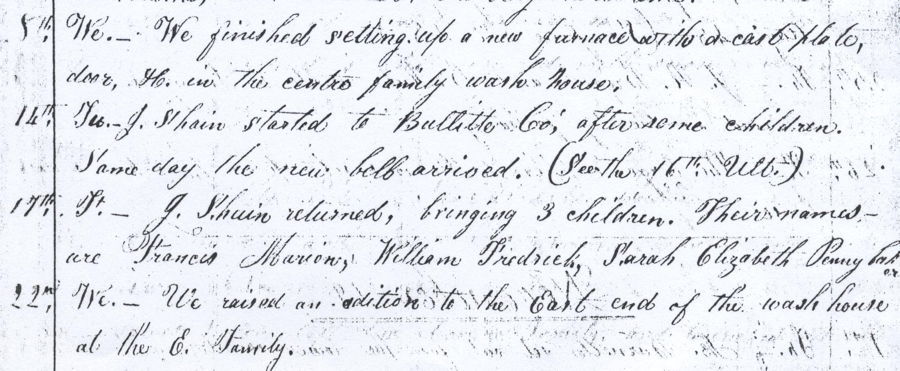 8th. We.— We finished setting up a new furnace with a cast plate,
door, &c. in the centre family wash house.
14th. Tu.— J. Shain started to Bullitte Co., after some children.
Same day the new bell arrived. (See the 16th. Ult.)
17th. F.— J. Shain returned, bringing 3 children. Their names—
are Francis Marion, William Fredrick, Sarah Elizabeth Pennybak
er.
22nd. We.— We raised an adition to the East end of the wash house
at the E. Family.